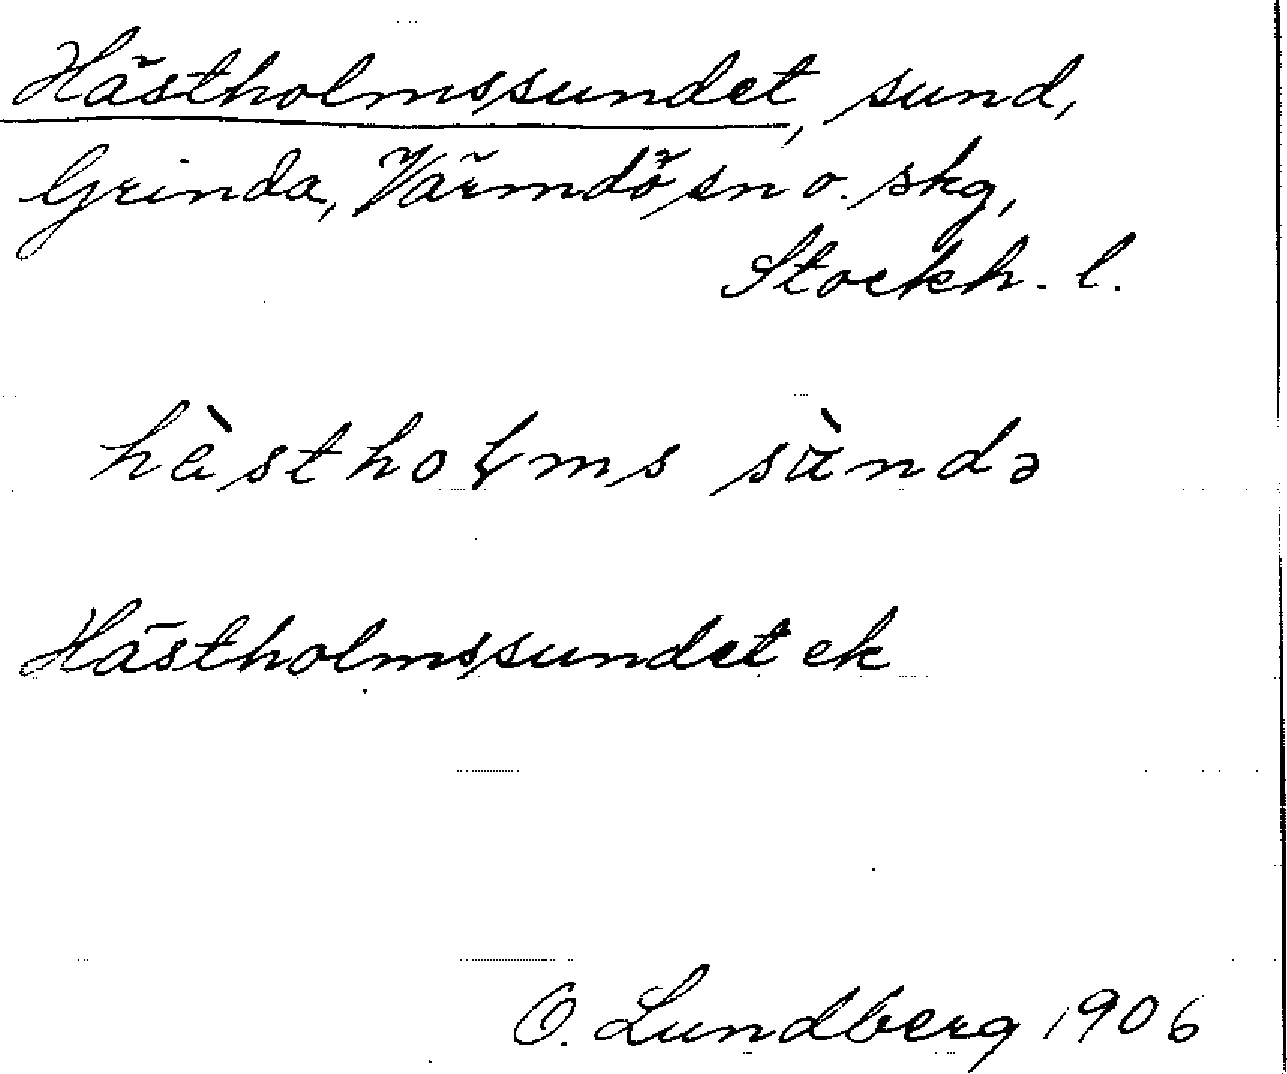 Hästholmssundet, sund,
Grinda, Värmdö sn o. skg,
Stockh. l.
hàstholms sùndə
Hästholmssundet ek
O. Lundberg 1906